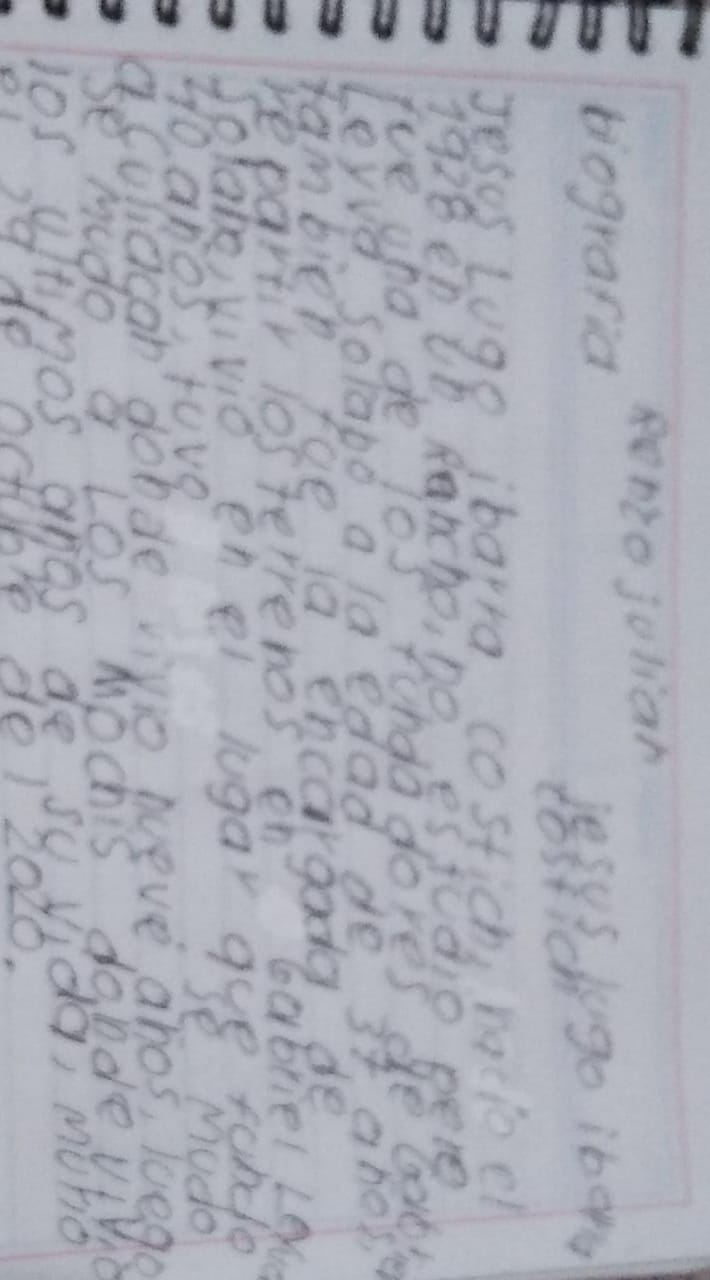 Renzo julian
biografia jesus lugo ibarra
costich
Jesus lugo ibarra costich, nacio el
1928 en un rancho, no estudio pero
fue una de los fundadores de Gabriel
Leyva Solano a la edad de 37 años,
tambien fue la encargada de
repartir los terrenos en Gabriel Leyva
Solano, vivio en el lugar que fundo
40 años, tuvo se mudo
a Culiacan donde vivio nueve años, luego
se mudo a Los Mochis donde vivio
los ultimos años de su vida, murio
el 29 de octubre del 2020.